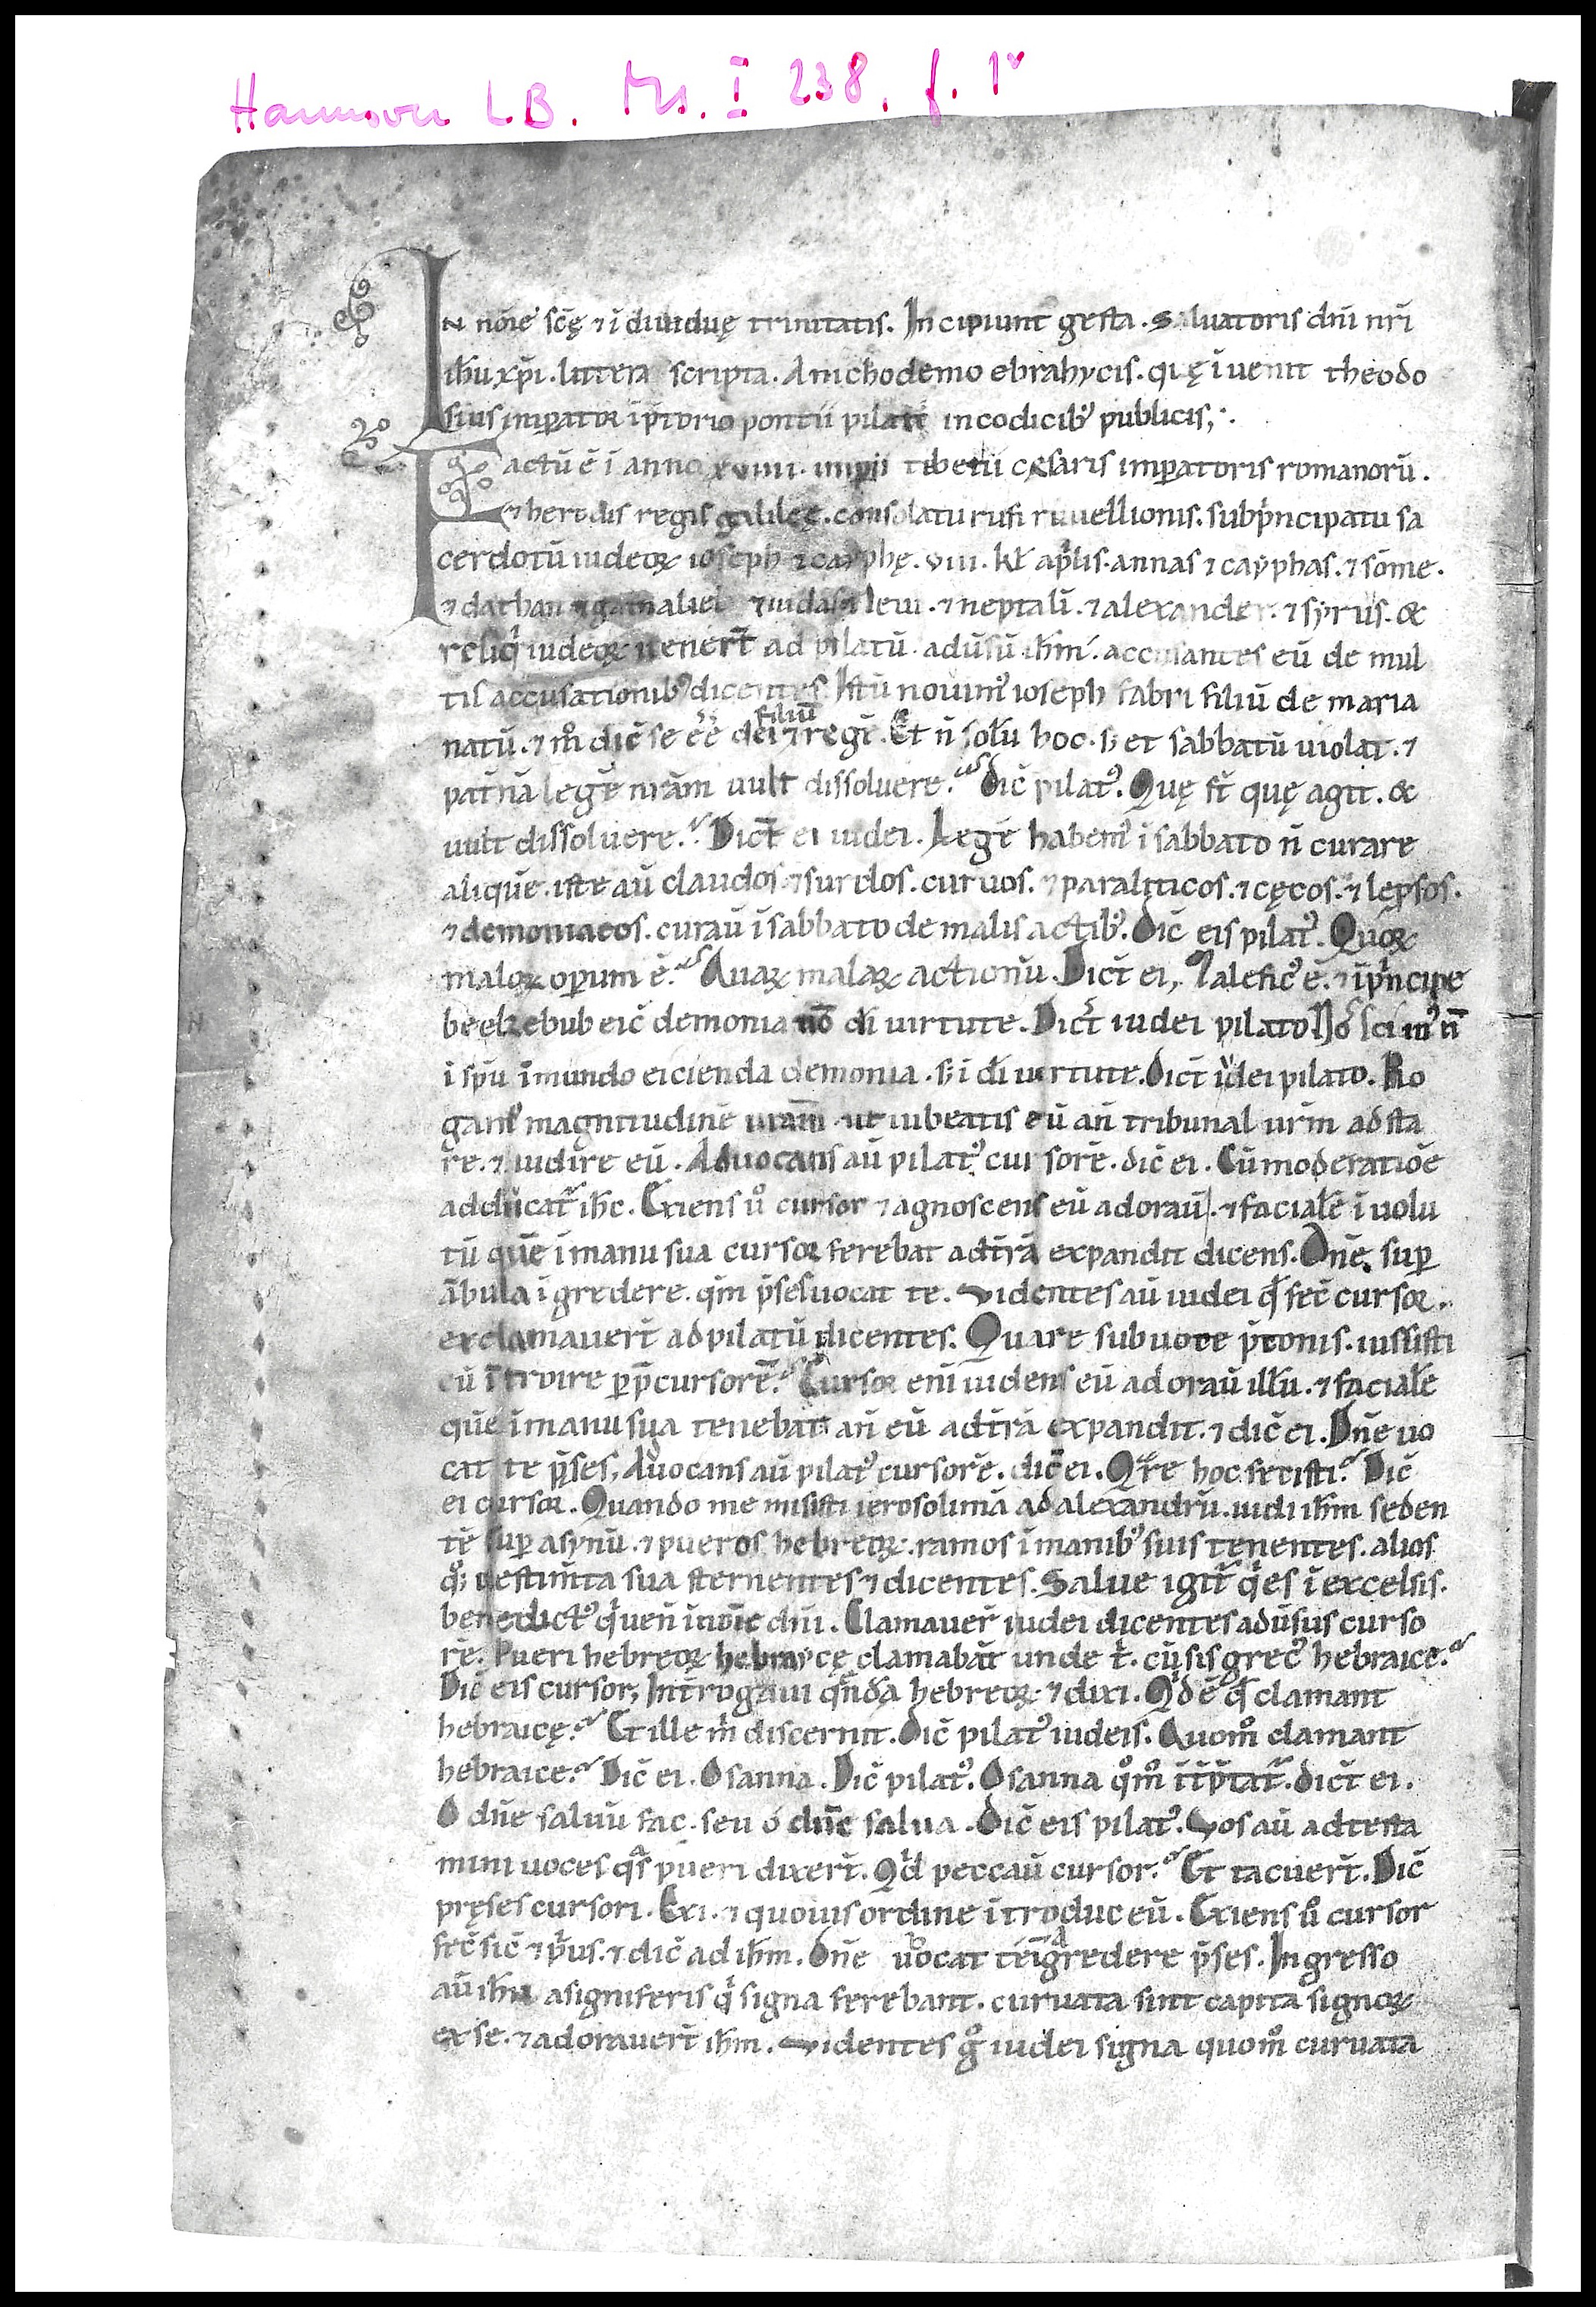 Hannover LB. Ms. I 238. f. 1v
IN nōie scē ⁊ īdiuiduę trinitatis. Incipiunt gesta. saluatoris dñi nr̄i
ih̄u xp̄i. littera scripta. A nichodemo ebrahycis. quę īuenit theodo
sius imꝑator ī p̄torio pontii pilati in codicib; publicis;.
Factū ē ī anno imperii tiberii cęsaris imꝑatoris romanorū.
⁊ herodis regis galileę. consolatu rufi ruuellionis. sub p̄ncipatu sa
cerdotū iudeoꝝ ioseph ⁊ cayphę. viii. kł aprłis. annas ⁊ cayphas. ⁊ sōme.
⁊ dathan ⁊ gamaliel ⁊ iudas leui. ⁊ neptalī. ⁊ alexander. ⁊ syrus. &
reliqi iudeoꝝ uenert̄ ad pilatū. adūsū ih̄m. accusantes eū de mul
tis accusationib; dicentes. Istū nouim; ioseph fabri filiū de maria
natū. ⁊ m̊ dic̄ se ēē dei filiū ⁊ regē. Et n̄ solū hoc. s; et sabbatū uiolat. ⁊
pat̄nā legē nrām uult dissoluere. Dic̄ pilat;. Quę st̄ quę agit. &
uult dissoluere. Dict̄ ei iudei. Legē habem; ī sabbato n̄ curare
aliquē. iste aū claudos ⁊ surdos. curuos. ⁊ paraliticos. ⁊ cęcos. ⁊ lepsos.
⁊ demoniacos. curaū ī sabbato de malis actib;. Dic̄ eis pilat;. Quoꝝ
maloꝝ oꝑum ē. Quaꝝ malaꝝ actionū. Dict̄ ei, Malefic; ē. ⁊ ī p̄ncipe
beelzebub eic̄ demonia nō dī uirtute. Dict̄ iudei pilato Nos scim; n̄
ī spū īmundo eicienda demonia. s; ī dī uirtute. Dict̄ iudei pilato. Ro
gam; magnitudinē urām ut iubeatis eū an̄ tribunal ur̄m adsta
re. ⁊ audire eū. Aduocans aū pilat; cursorē. dic̄ ei. Cū moderatiōe
adducat̄ ih̄c. Exiens ů cursor ⁊ agnoscens eū adoraū. ⁊ facialē īuolu
tū quē ī manu sua cursor ferebat ad t̄rā expandit dicens. Dn̄e. suꝑ
ābula īgredere. qm̄ p̄ses uocat te. Videntes aū iudei qd̄ fec̄ cursor.
exclamauert̄ ad pilatū dicentes. Quare sub uoce p̄conis. iussisti
eū īt̄roire ꝑ p̄cursorē. Cursor enī uidens eū adoraū illū. ⁊ facialē
quē ī manu sua tenebat an̄ eū ad t̄rā expandit. ⁊ dic̄ ei. Dn̄e uo
cat te p̄ses, Aduocans aū pilat; cursorē. dic̄ ei. Qre hoc fecisti. Dic̄
ei cursor. Quando me misisti ierosolimā ad alexandrū. uidi ih̄m seden
tē suꝑ asynū. ⁊ pueros hebreoꝝ. ramos ī manib; suis tenentes. alios
q; uestim̄ta sua sternentes ⁊ dicentes. Salue igit̄ qi es ī excelsis.
benedict; qi uen̄ ī nōie dn̄i. Clamauer̄ iudei dicentes adūsus curso
rē. Pueri hebreoꝝ hebraycę clamabāt unde t̄. cū sis grec; hebraice.
Dic̄ eis cursor, Introgaui qn̄dā hebreoꝝ. ⁊ dixi. Qid ē qd̄ clamant
hebraicę. Et ille m̄ discernit. Dic̄ pilat; iudeis. Quom̊ clamant
hebraice. Dic̄ ei. Osanna. Dic̄ pilat;. Osanna qom̊ īt̄p̄tat̄. Dict̄ ei.
O dn̄e saluū fac. seu ó dn̄e salua. Dic̄ eis pilat;. Vos aū adtesta
mini uoces qs pueri dixert̄. Qid peccaū cursor. Et tacuert̄. Dic̄
pręses cursori. Exi. ⁊ quouis ordine ītroduc eū. Exiens ů cursor
fec̄ sic̄ ⁊ p̄us. ⁊ dic̄ ad ih̄m. Dn̄e uocat te īgredere p̄ses. Ingresso
aū ih̄u a signiferis qi signa ferebant. curuata sunt capita signoꝝ
ex se. ⁊ adorauert̄ ih̄m. Videntes g̊ iudei signa quom̊ curuata